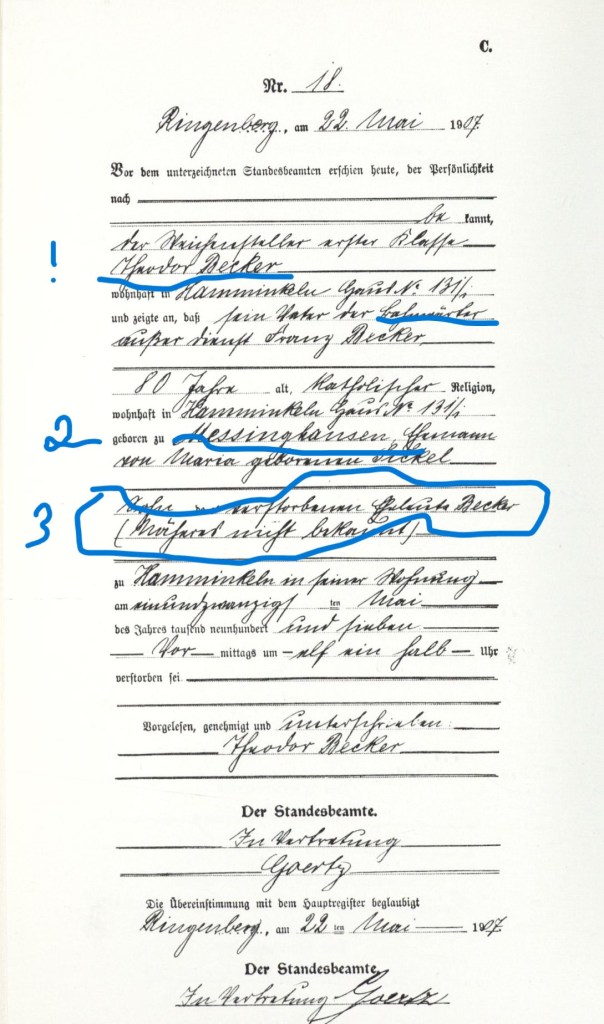 C.
Nr. 18.
Ringenberg, am 22. Mai 1907.
Vor dem unterzeichneten Standesbeamten erschien heute, der Persönlichkeit
nach
be kannt,
der Weichensteller erster Klasse
! Theodor Becker
wohnhaft in Hamminkeln Haus No 131/i
und zeigte an, daß sein Vater der Bahnwärter
außer Dienst Franz Becker
80 Jahre alt, katholischer Religion,
wohnhaft in Hamminkeln Haus No 131/i
2 geboren zu Messinghausen, Ehemann
von Maria geborenen Sickel
3 Sohn der verstorbenen Eheleute Becker
(Näheres nicht bekannt)
zu Hamminkeln in seiner Wohnung
am einundzwanzigsten Mai
des Jahres tausend neunhundert und sieben
Vor mittags um elf ein halb Uhr
verstorben sei
Vorgelesen, genehmigt und unterschrieben:
Theodor Becker
Der Standesbeamte.
In Vertretung
Goertz
Die Übereinstimmung mit dem Hauptregister beglaubigt
Ringenberg, am 22 ten Mai 1907.
Der Standesbeamte.
In Vertretung Goertz